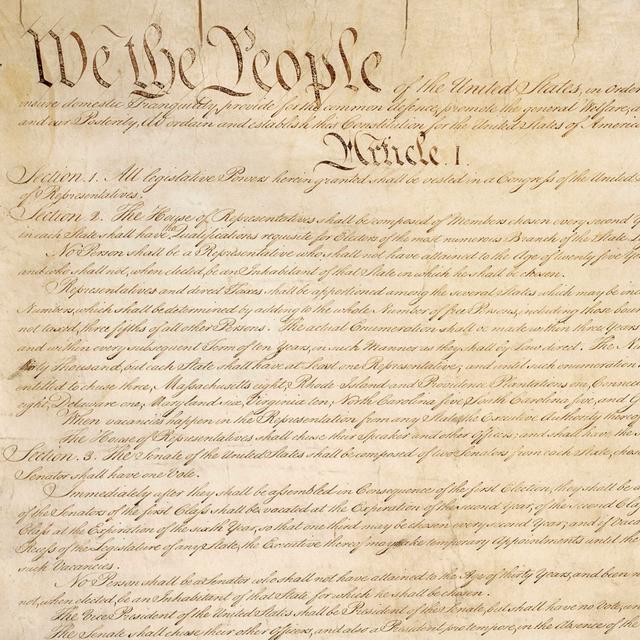 We the People of the United States, in order
insure domestic Tranquility, provide for the common defence, promote the general Welfare,
and our Posterity, do ordain and establish this Constitution for the United States of America
Article. I.
Section. 1. All legislative Powers herein granted shall be vested in a Congress of the United
of Representatives.
Section. 2. The House of Representatives shall be composed of Members chosen every second
in each State shall have the Qualifications requisite for Electors of the most numerous Branch of the State
No Person shall be a Representative who shall not have attained to the Age of twenty five
and who shall not, when elected, be an Inhabitant of that State in which he shall be chosen.
Representatives and direct Taxes shall be apportioned among the several States which may be
Numbers, which shall be determined by adding to the whole Number of free Persons, including those
not taxed, three fifths of all other Persons. The actual Enumeration shall be made within three Years
and within every subsequent Term of ten Years, in such Manner as they shall by Law direct. The
thirty Thousand, but each State shall have at Least one Representative; and until such enumeration
entitled to chuse three, Massachusetts eight, Rhode Island and Providence Plantations one,
eight, Delaware one, Maryland six, Virginia ten, North Carolina five, South Carolina five, and
When vacancies happen in the Representation from any State, the Executive Authority thereof
The House of Representatives shall chuse their Speaker and other Officers; and shall have the
Section. 3. The Senate of the United States shall be composed of two Senators from each State,
Senator shall have one Vote.
Immediately after they shall be assembled in Consequence of the first Election, they shall be
of the Senators of the first Class shall be vacated at the Expiration of the second Year, of the second
Class at the Expiration of the sixth Year, so that one third may be chosen every second Year; and if
Recess of the Legislature of any State, the Executive thereof may make temporary Appointments until the
such Vacancies.
No Person shall be a Senator who shall not have attained to the Age of thirty Years, and been
not, when elected, be an Inhabitant of that State for which he shall be chosen.
The Vice President of the United States shall be President of the Senate, but shall have no Vote,
The Senate shall chuse their other Officers, and also a President pro tempore, in the Absence of the